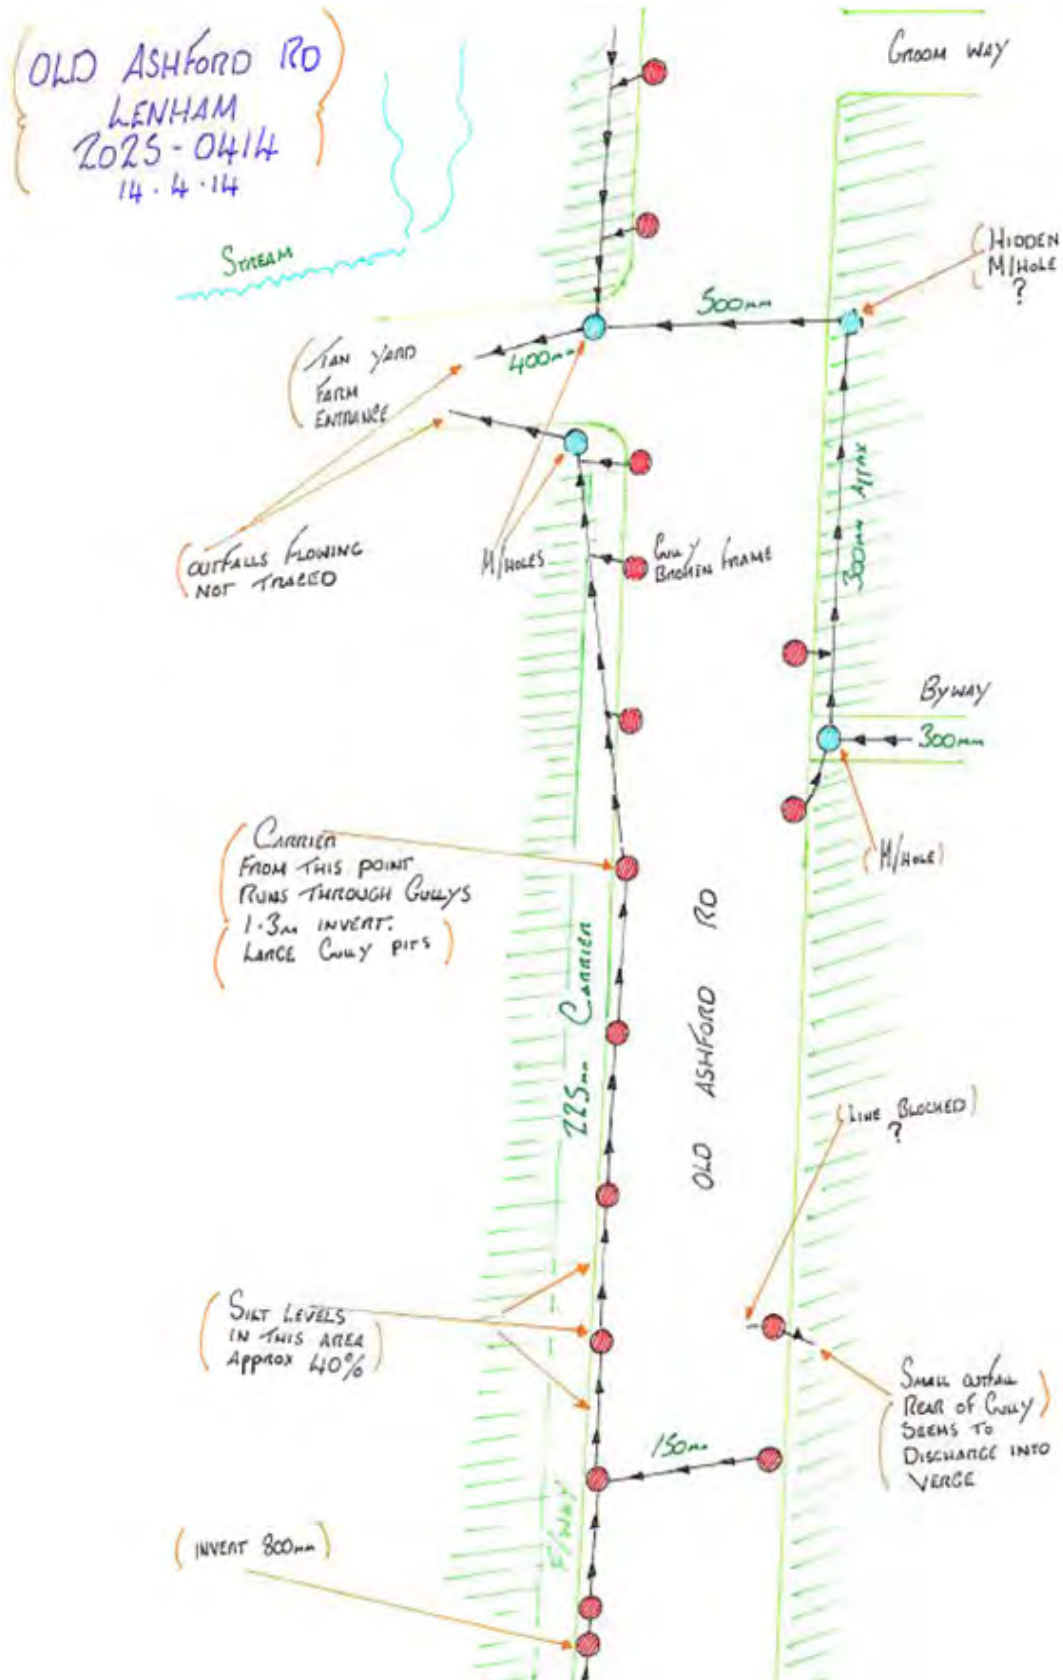 OLD ASHFORD RD
LENHAM
2025-0414
14.4.14
GROOM WAY
STREAM
(HIDDEN
M/HOLE
?
500mm
400mm
(TAN YARD
FARM
ENTRANCE
300mm APPAX
(OUTFALLS FLOWING
NOT TRACED
M/HOLES
GULLY
BROKEN FRAME
BYWAY
300mm
(M/HOLE)
(CARRIER
FROM THIS POINT
RUNS THROUGH GULLYS
1.3m INVERT.
LARGE GULLY PITS)
225mm CARRIER
OLD ASHFORD RD
(LINE BLOCKED)
?
(SILT LEVELS
IN THIS AREA
APPROX 40%)
SMALL OUTFALL
REAR OF GULLY)
(SEEMS TO
DISCHARGE INTO
VERGE
150mm
F/WAY
(INVERT 800mm)